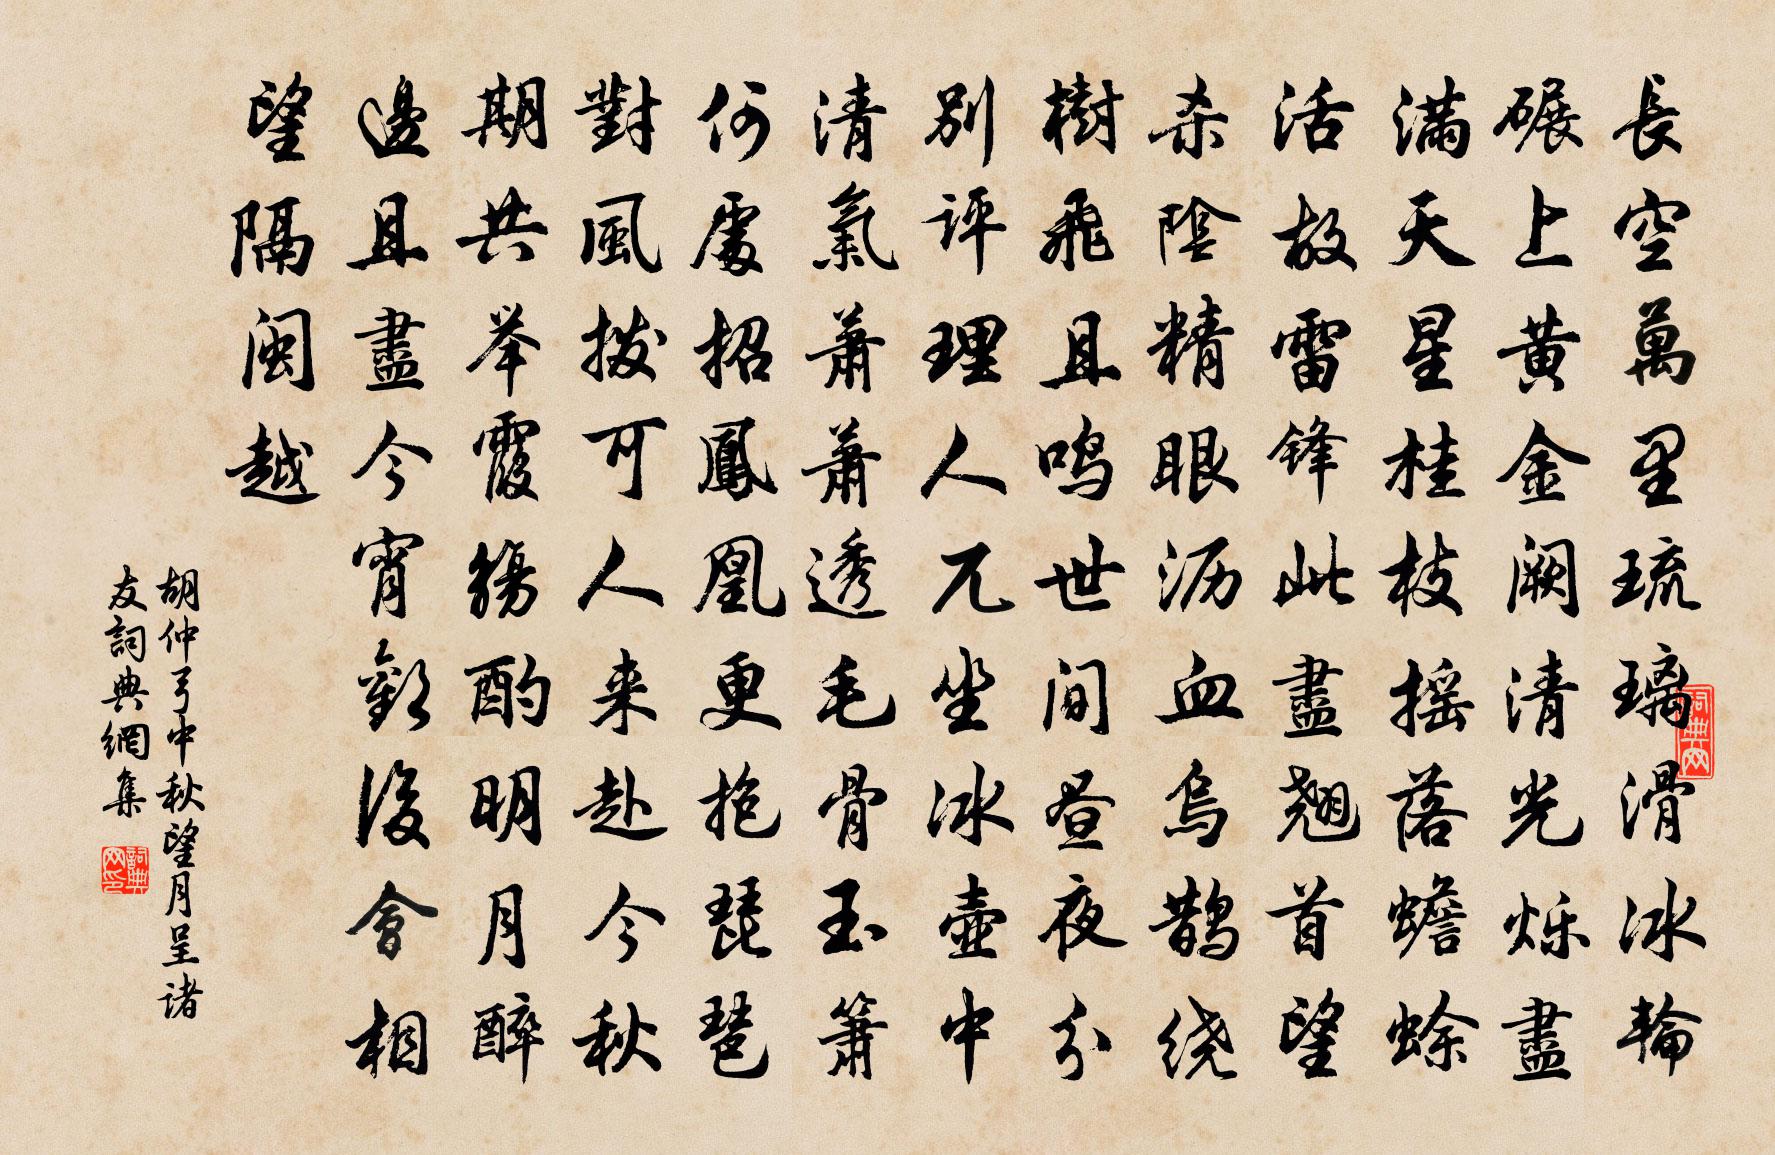 長空萬里琉璃滑冰輪
碾上黃金闕清光烁盡
滿天星桂枝摇落蟾蜍
活故雷锋此盡翹首望
杀陰精眼沥血烏鹊绕
樹飛且鸣世间昼夜分
别评理人兀坐冰壺中
清氣萧萧透毛骨玉箫
何處招鳳凰更抱琵琶
對風拨可人来赴今秋
期共举霞觴酌明月醉
邊且盡今宵歡後會相
望隔闽越
胡仲弓中秋望月呈诸
友詞典網集
詞典网
詞典网印